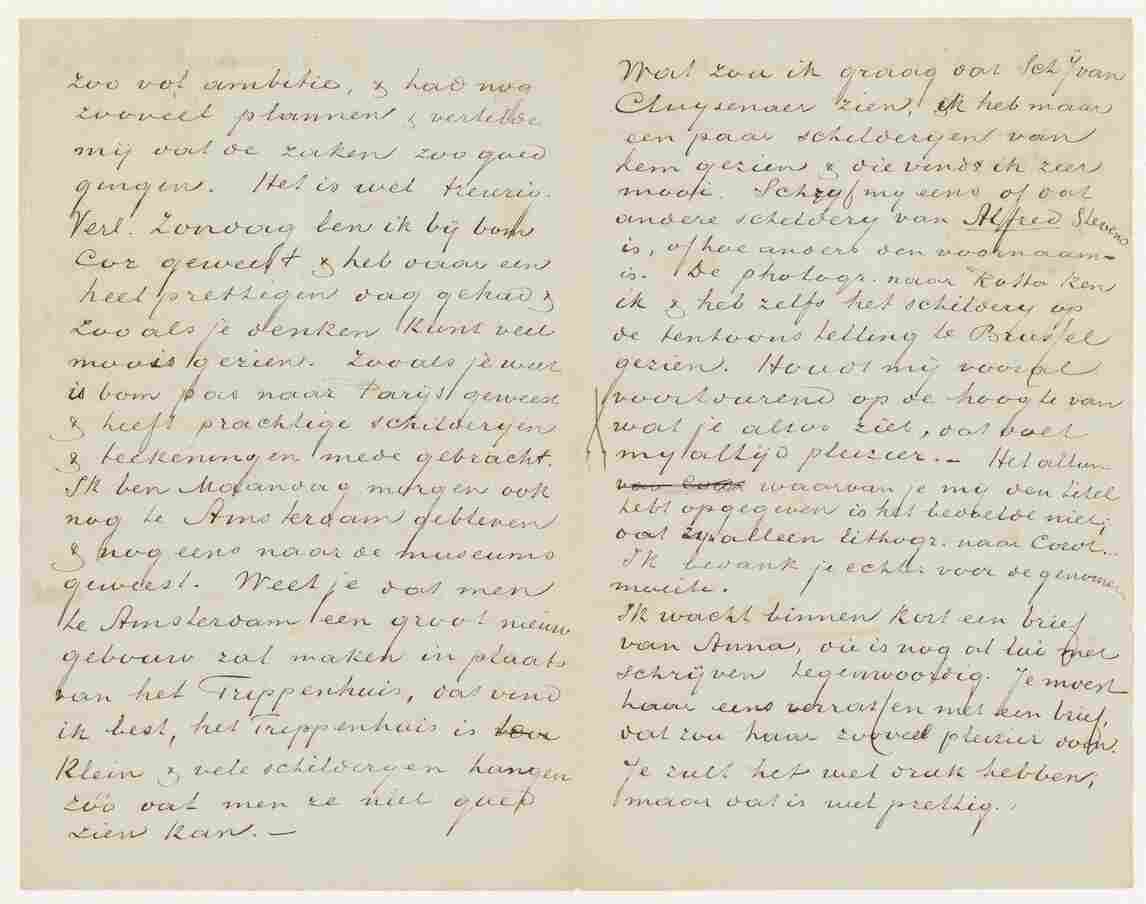 zoo vol ambitie, & had nog
zooveel plannen & vertelde
mij dat de zaken zoo goed
gingen. Het is wel treurig.
Verl. Zondag ben ik bij oom
Cor geweest & heb daar een
heel prettigen dag gehad &
zooals je denken kunt veel
moois gezien. Zooals je weet
is oom pas naar Parijs geweest
& heeft prachtige schilderyen
& teekeningen mede gebracht.
Ik ben Maandag morgen ook
nog te Amsterdam gebleven
& nog eens naar de museums
geweest. Weet je dat men
te Amsterdam een groot nieuw
gebouw zal maken in plaats
van het Trippenhuis, dat vind
ik best, het Trippenhuis is
klein & vele schilderyen hangen
zóó dat men ze niet goed
zien kan. —
Wat zou ik graag dat Schij van
Cluysenaer zien, ik heb maar
een paar schilderyen van
hem gezien & die vind ik zeer
mooi. Schryf my eens of dat
andere schildery van Alfred Stevens
is, of hoe anders den voornaam
is. De photogr. naar Rotta ken
ik & heb zelfs het schildery op
de tentoonstelling te Brussel
gezien. Houdt mij vooral
voortdurend op de hoogte van
wat je alzoo ziet, dat doet
my altijd pleizier. — Het album
waarvan je my den titel
hebt opgegeven is het bedoelde niet,
dat zyn alleen lithogr. naar Corot.
Ik bedank je echter voor de genomen
moeite.
Ik wacht binnen kort een brief
van Anna, die is nog al lui met
schrijven tegenwoordig. Je moest
haar eens verrassen met een brief,
dat zou haar zooveel pleizier doen.
Je zult het wel druk hebben,
maar dat is wel prettig.